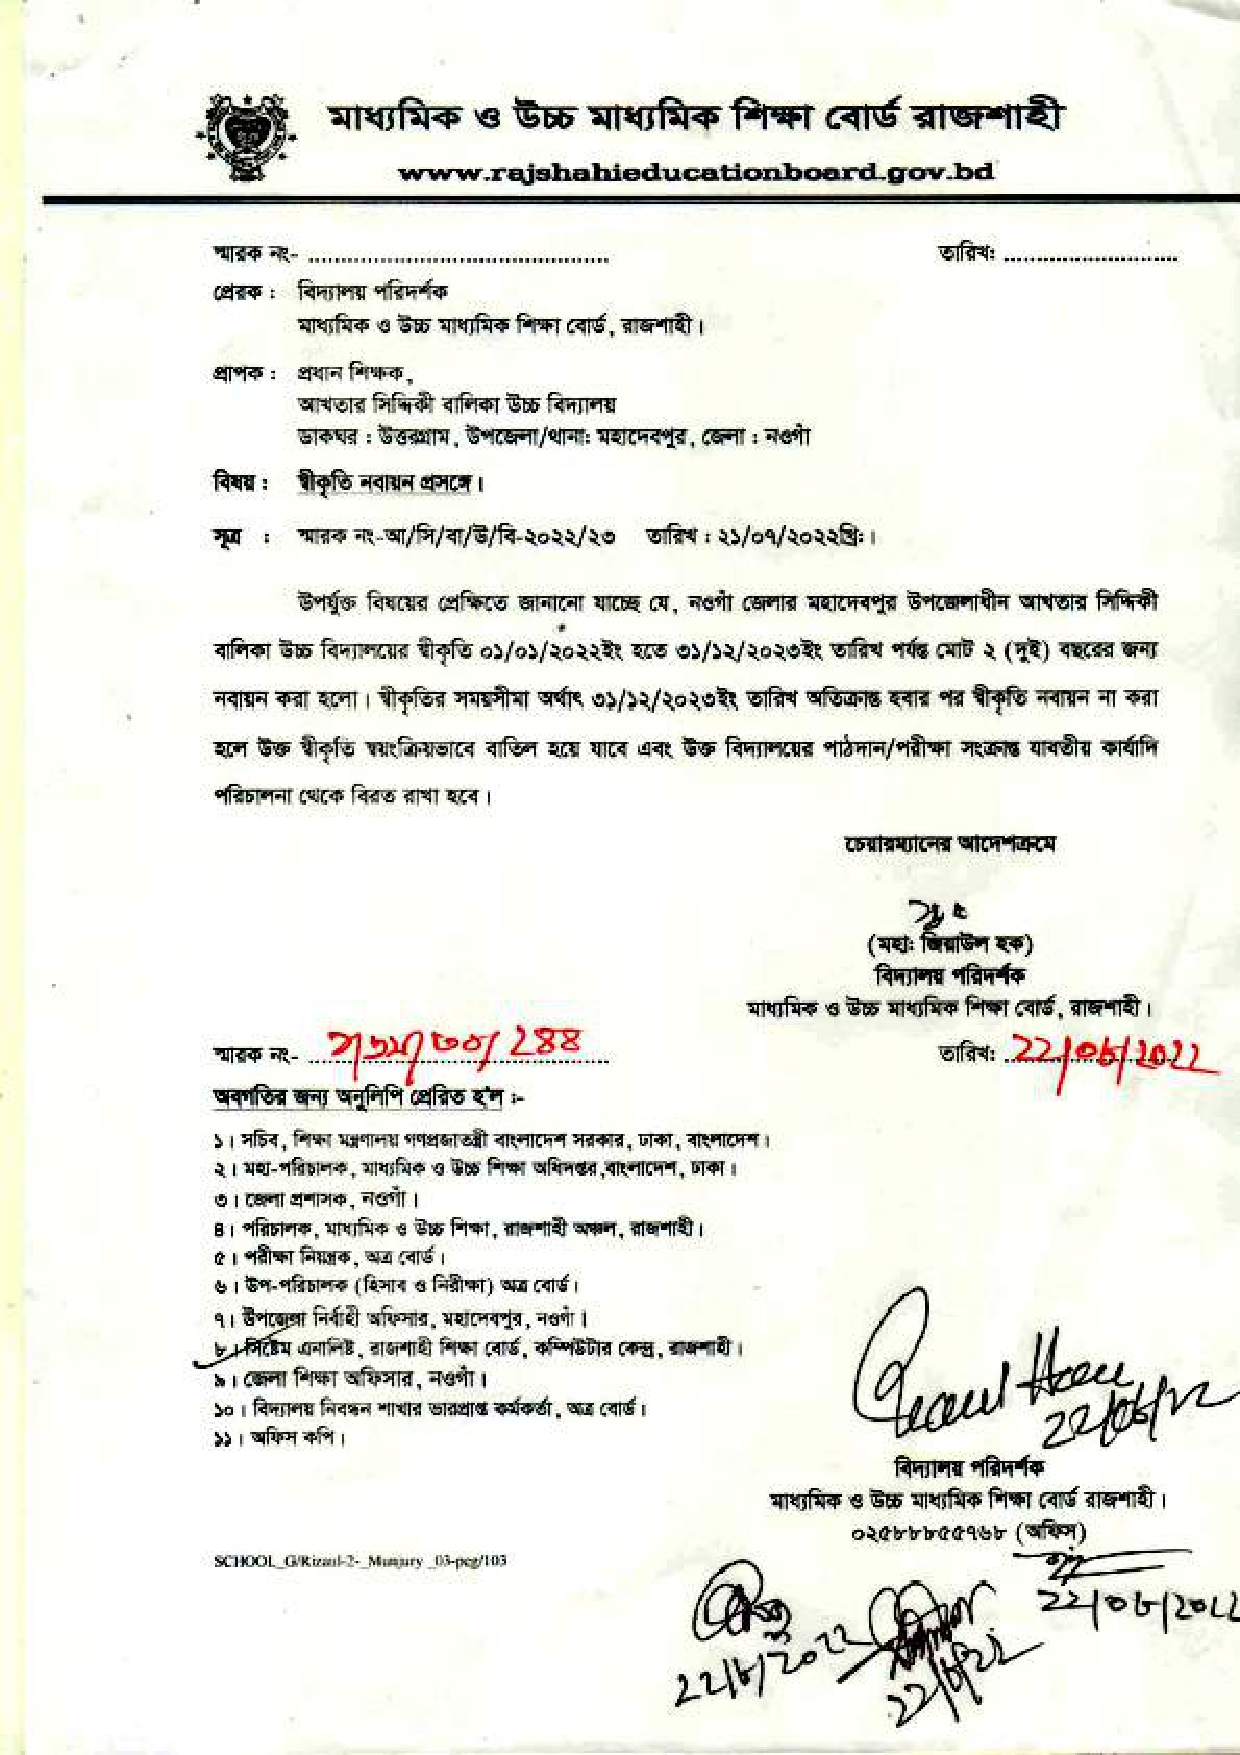 মাধ্যমিক ও উচ্চ মাধ্যমিক শিক্ষা বোর্ড রাজশাহী
www.rajshahieducationboard.gov.bd
স্মারক নং- ............................................. তারিখ: ..........................
প্রেরক : বিদ্যালয় পরিদর্শক
মাধ্যমিক ও উচ্চ মাধ্যমিক শিক্ষা বোর্ড, রাজশাহী।
প্রাপক : প্রধান শিক্ষক,
আখতার সিদ্দিকী বালিকা উচ্চ বিদ্যালয়
ডাকঘর : উত্তরগ্রাম, উপজেলা/থানা: মহাদেবপুর, জেলা : নওগাঁ
বিষয় : স্বীকৃতি নবায়ন প্রসঙ্গে।
সূত্র : স্মারক নং-আ/সি/বা/উ/বি-২০২২/২৩ তারিখ : ২১/০৭/২০২২খ্রিঃ।
উপর্যুক্ত বিষয়ের প্রেক্ষিতে জানানো যাচ্ছে যে, নওগাঁ জেলার মহাদেবপুর উপজেলাধীন আখতার সিদ্দিকী
বালিকা উচ্চ বিদ্যালয়ের স্বীকৃতি ০১/০১/২০২২ইং হতে ৩১/১২/২০২৩ইং তারিখ পর্যন্ত মোট ২ (দুই) বছরের জন্য
নবায়ন করা হলো। স্বীকৃতির সময়সীমা অর্থাৎ ৩১/১২/২০২৩ইং তারিখ অতিক্রান্ত হবার পর স্বীকৃতি নবায়ন না করা
হলে উক্ত স্বীকৃতি স্বয়ংক্রিয়ভাবে বাতিল হয়ে যাবে এবং উক্ত বিদ্যালয়ের পাঠদান/পরীক্ষা সংক্রান্ত যাবতীয় কার্যাদি
পরিচালনা থেকে বিরত রাখা হবে।
চেয়ারম্যানের আদেশক্রমে
(মহা: জিয়াউল হক)
বিদ্যালয় পরিদর্শক
মাধ্যমিক ও উচ্চ মাধ্যমিক শিক্ষা বোর্ড, রাজশাহী।
স্মারক নং- তারিখ: ২২/০৮/২০২২
অবগতির জন্য অনুলিপি প্রেরিত হ'ল :-
১। সচিব, শিক্ষা মন্ত্রণালয় গণপ্রজাতন্ত্রী বাংলাদেশ সরকার, ঢাকা, বাংলাদেশ।
২। মহা-পরিচালক, মাধ্যমিক ও উচ্চ শিক্ষা অধিদপ্তর,বাংলাদেশ, ঢাকা।
৩। জেলা প্রশাসক, নওগাঁ।
৪। পরিচালক, মাধ্যমিক ও উচ্চ শিক্ষা, রাজশাহী অঞ্চল, রাজশাহী।
৫। পরীক্ষা নিয়ন্ত্রক, অত্র বোর্ড।
৬। উপ-পরিচালক (হিসাব ও নিরীক্ষা) অত্র বোর্ড।
৭। উপজেলা নির্বাহী অফিসার, মহাদেবপুর, নওগাঁ।
৮। সিষ্টেম এনালিষ্ট, রাজশাহী শিক্ষা বোর্ড, কম্পিউটার কেন্দ্র, রাজশাহী।
৯। জেলা শিক্ষা অফিসার, নওগাঁ।
১০। বিদ্যালয় নিবন্ধন শাখার ভারপ্রাপ্ত কর্মকর্তা, অত্র বোর্ড।
১১। অফিস কপি।
২২/০৮/২২
বিদ্যালয় পরিদর্শক
মাধ্যমিক ও উচ্চ মাধ্যমিক শিক্ষা বোর্ড রাজশাহী।
০২৫৮৮৮৫৫৭৬৮ (অফিস)
SCHOOL_G/Rizaul-2-_Munjury _03-pcg/103
২২/০৮/২০২২
২২/৮/২০২২
২২/৮/২২